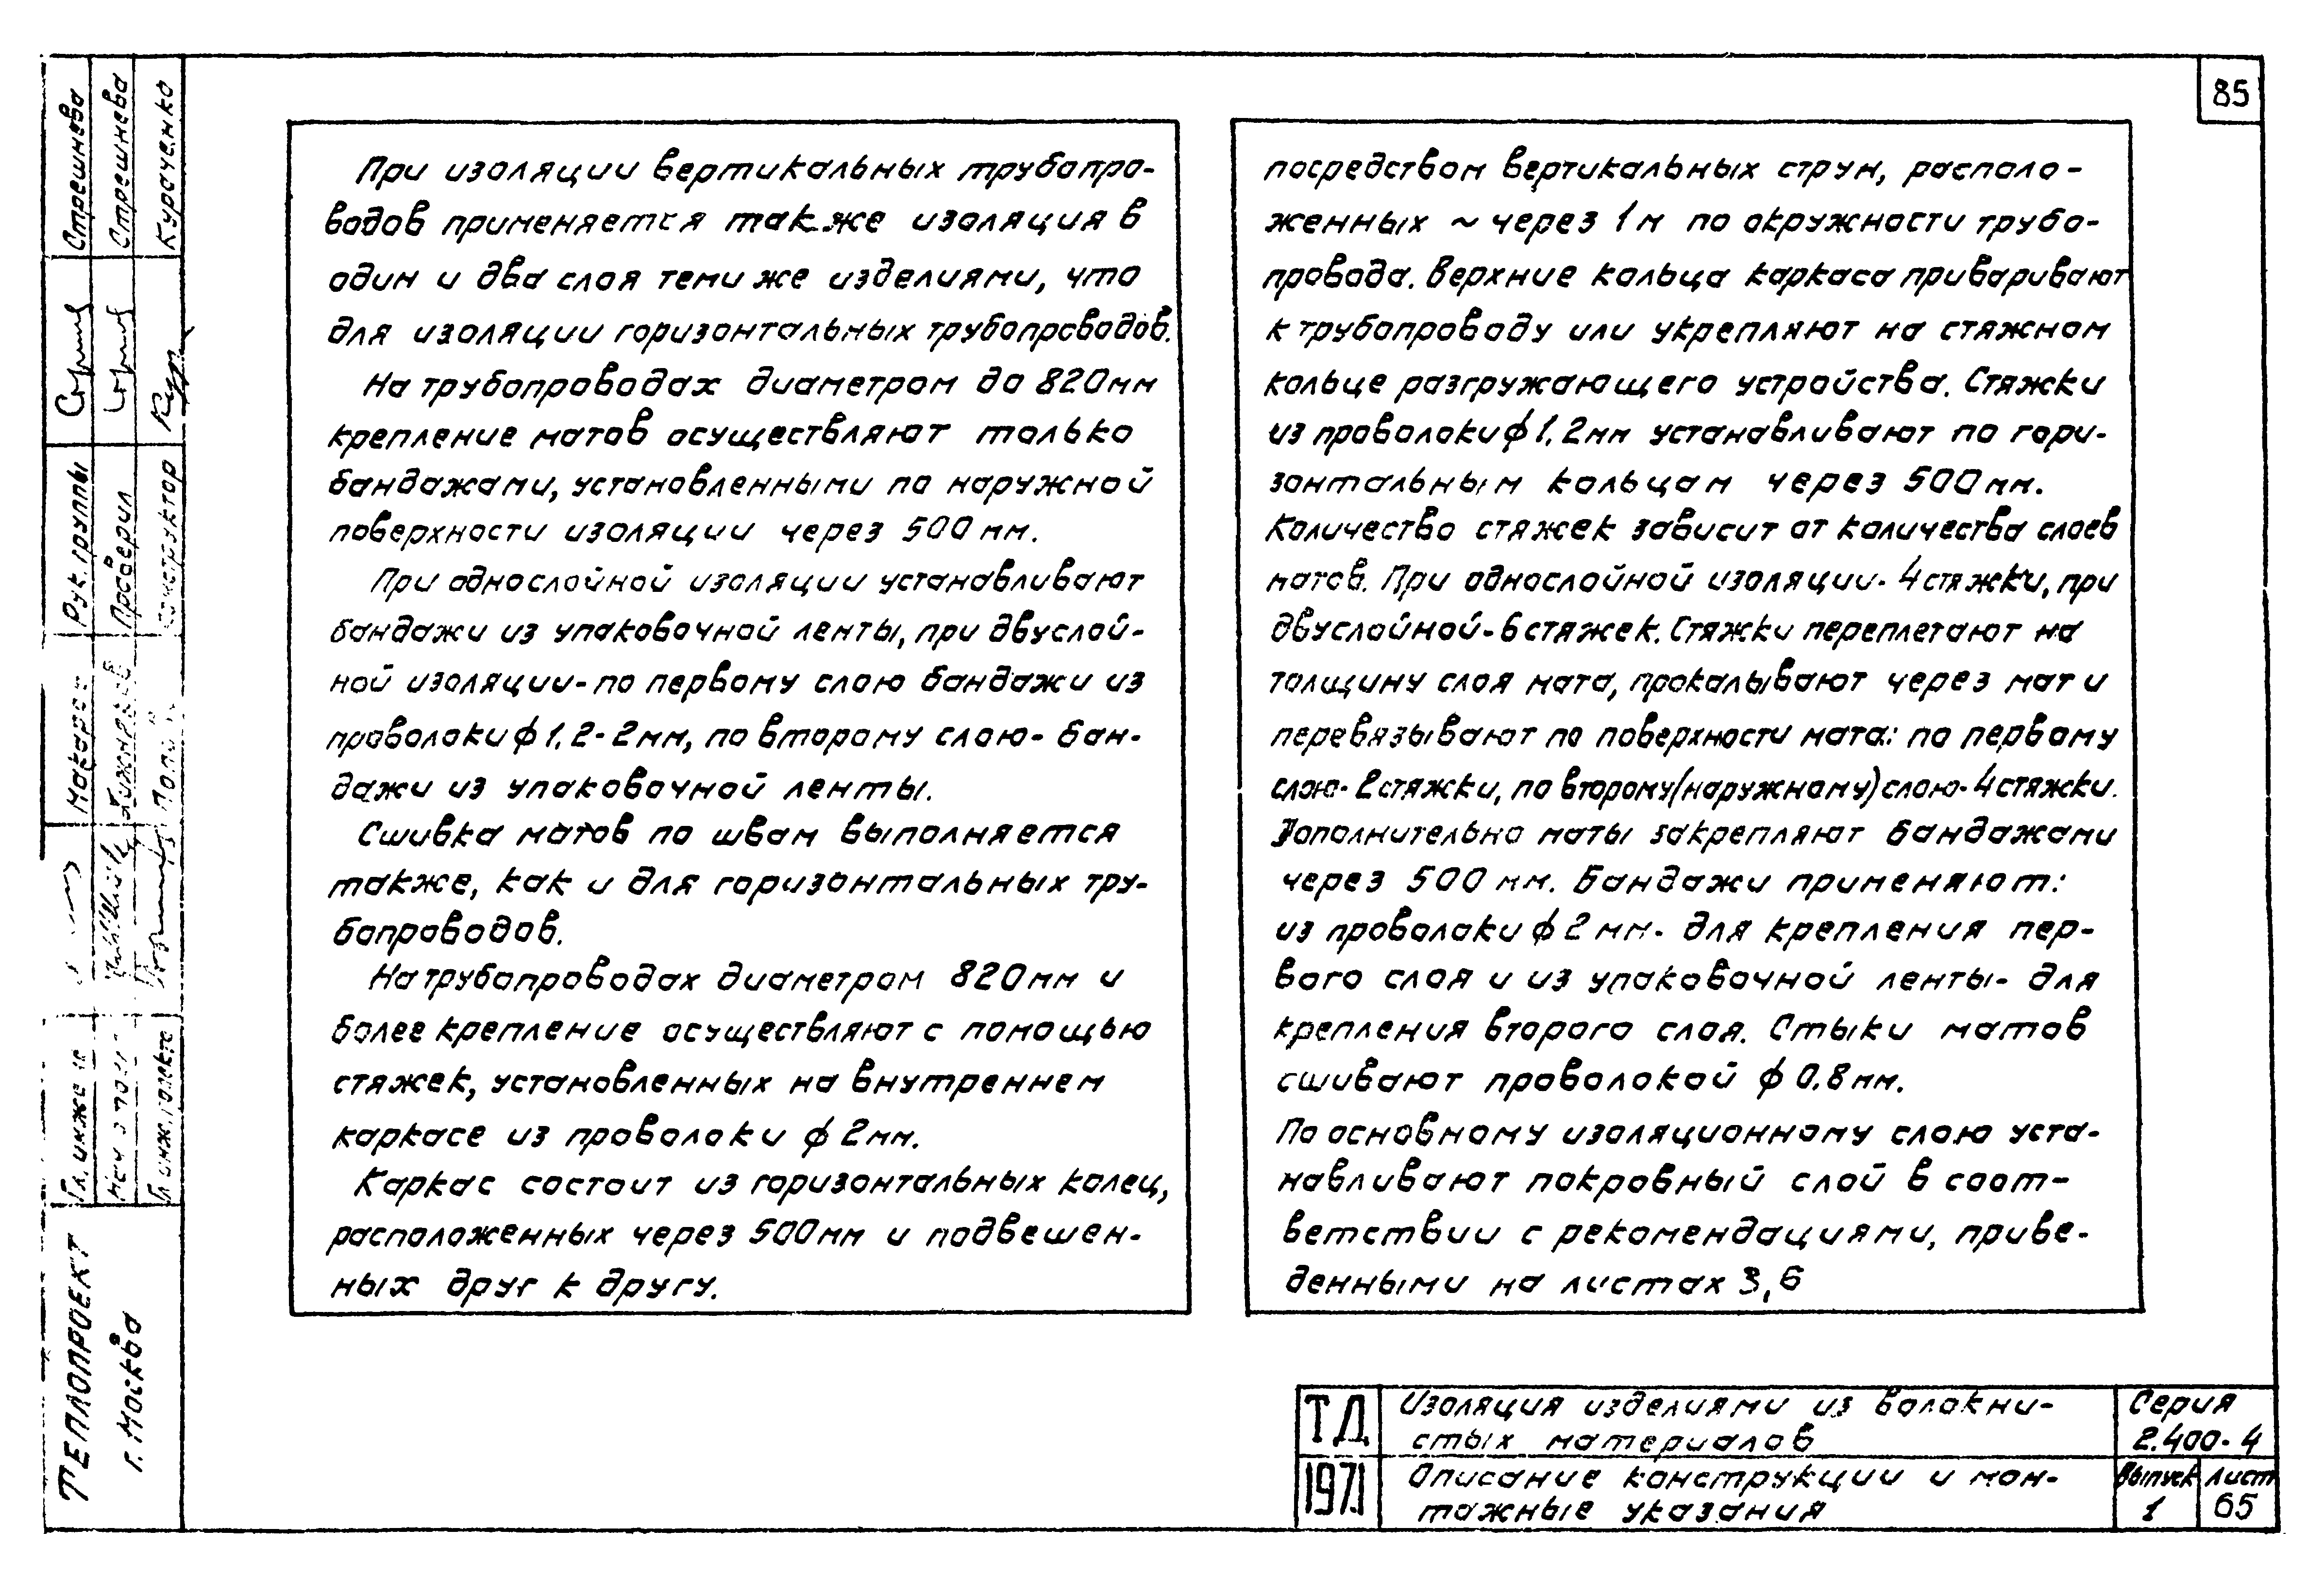 85
При изоляции вертикальных трубопро-
водов применяется также изоляция в
один и два слоя теми же изделиями, что
для изоляции горизонтальных трубопроводов.
На трубопроводах диаметром до 820мм
крепление матов осуществляют только
бандажами, установленными по наружной
поверхности изоляции через 500 мм.
При однослойной изоляции устанавливают
бандажи из упаковочной ленты, при двуслой-
ной изоляции-по первому слою бандажи из
проволоки ф 1,2-2мм, по второму слою- бан-
дажи из упаковочной ленты.
Сшивка матов по швам выполняется
также, как и для горизонтальных тру-
бопроводов.
На трубопроводах диаметром 820мм и
более крепление осуществляют с помощью
стяжек, установленных на внутреннем
каркасе из проволоки ф 2мм.
Каркас состоит из горизонтальных колец,
расположенных через 500мм и подвешен-
ных друг к другу.
посредством вертикальных струн, располо-
женных ~ через 1м по окружности трубо-
провода. Верхние кольца каркаса приваривают
к трубопроводу или укрепляют на стяжном
кольце разгружающего устройства. Стяжки
из проволоки ф 1,2мм устанавливают по гори-
зонтальным кольцам через 500мм.
Количество стяжек зависит от количества слоев
матов. При однослойной изоляции- 4 стяжки, при
двуслойной-6 стяжек. Стяжки переплетают на
толщину слоя мата, прокалывают через мат и
перевязывают по поверхности мата: по первому
слою- 2 стяжки, по второму (наружному) слою- 4 стяжки.
Дополнительно маты закрепляют бандажами
через 500 мм. Бандажи применяют:
из проволоки ф 2 мм- для крепления пер-
вого слоя и из упаковочной ленты- для
крепления второго слоя. Стыки матов
сшивают проволокой ф 0,8 мм.
По основному изоляционному слою уста-
навливают покровный слой в соот-
ветствии с рекомендациями, приве-
денными на листах 3,6
Стрешнева
Стрешнева
Кураченко
Рук. группы
Проверил
Конструктор
ТЕПЛОПРОЕКТ
г. Москва
ТД
1971
Изоляция изделиями из волокни-
стых материалов
Описание конструкции и мон-
тажные указания
Серия
2.400-4
Выпуск
1
Лист
65